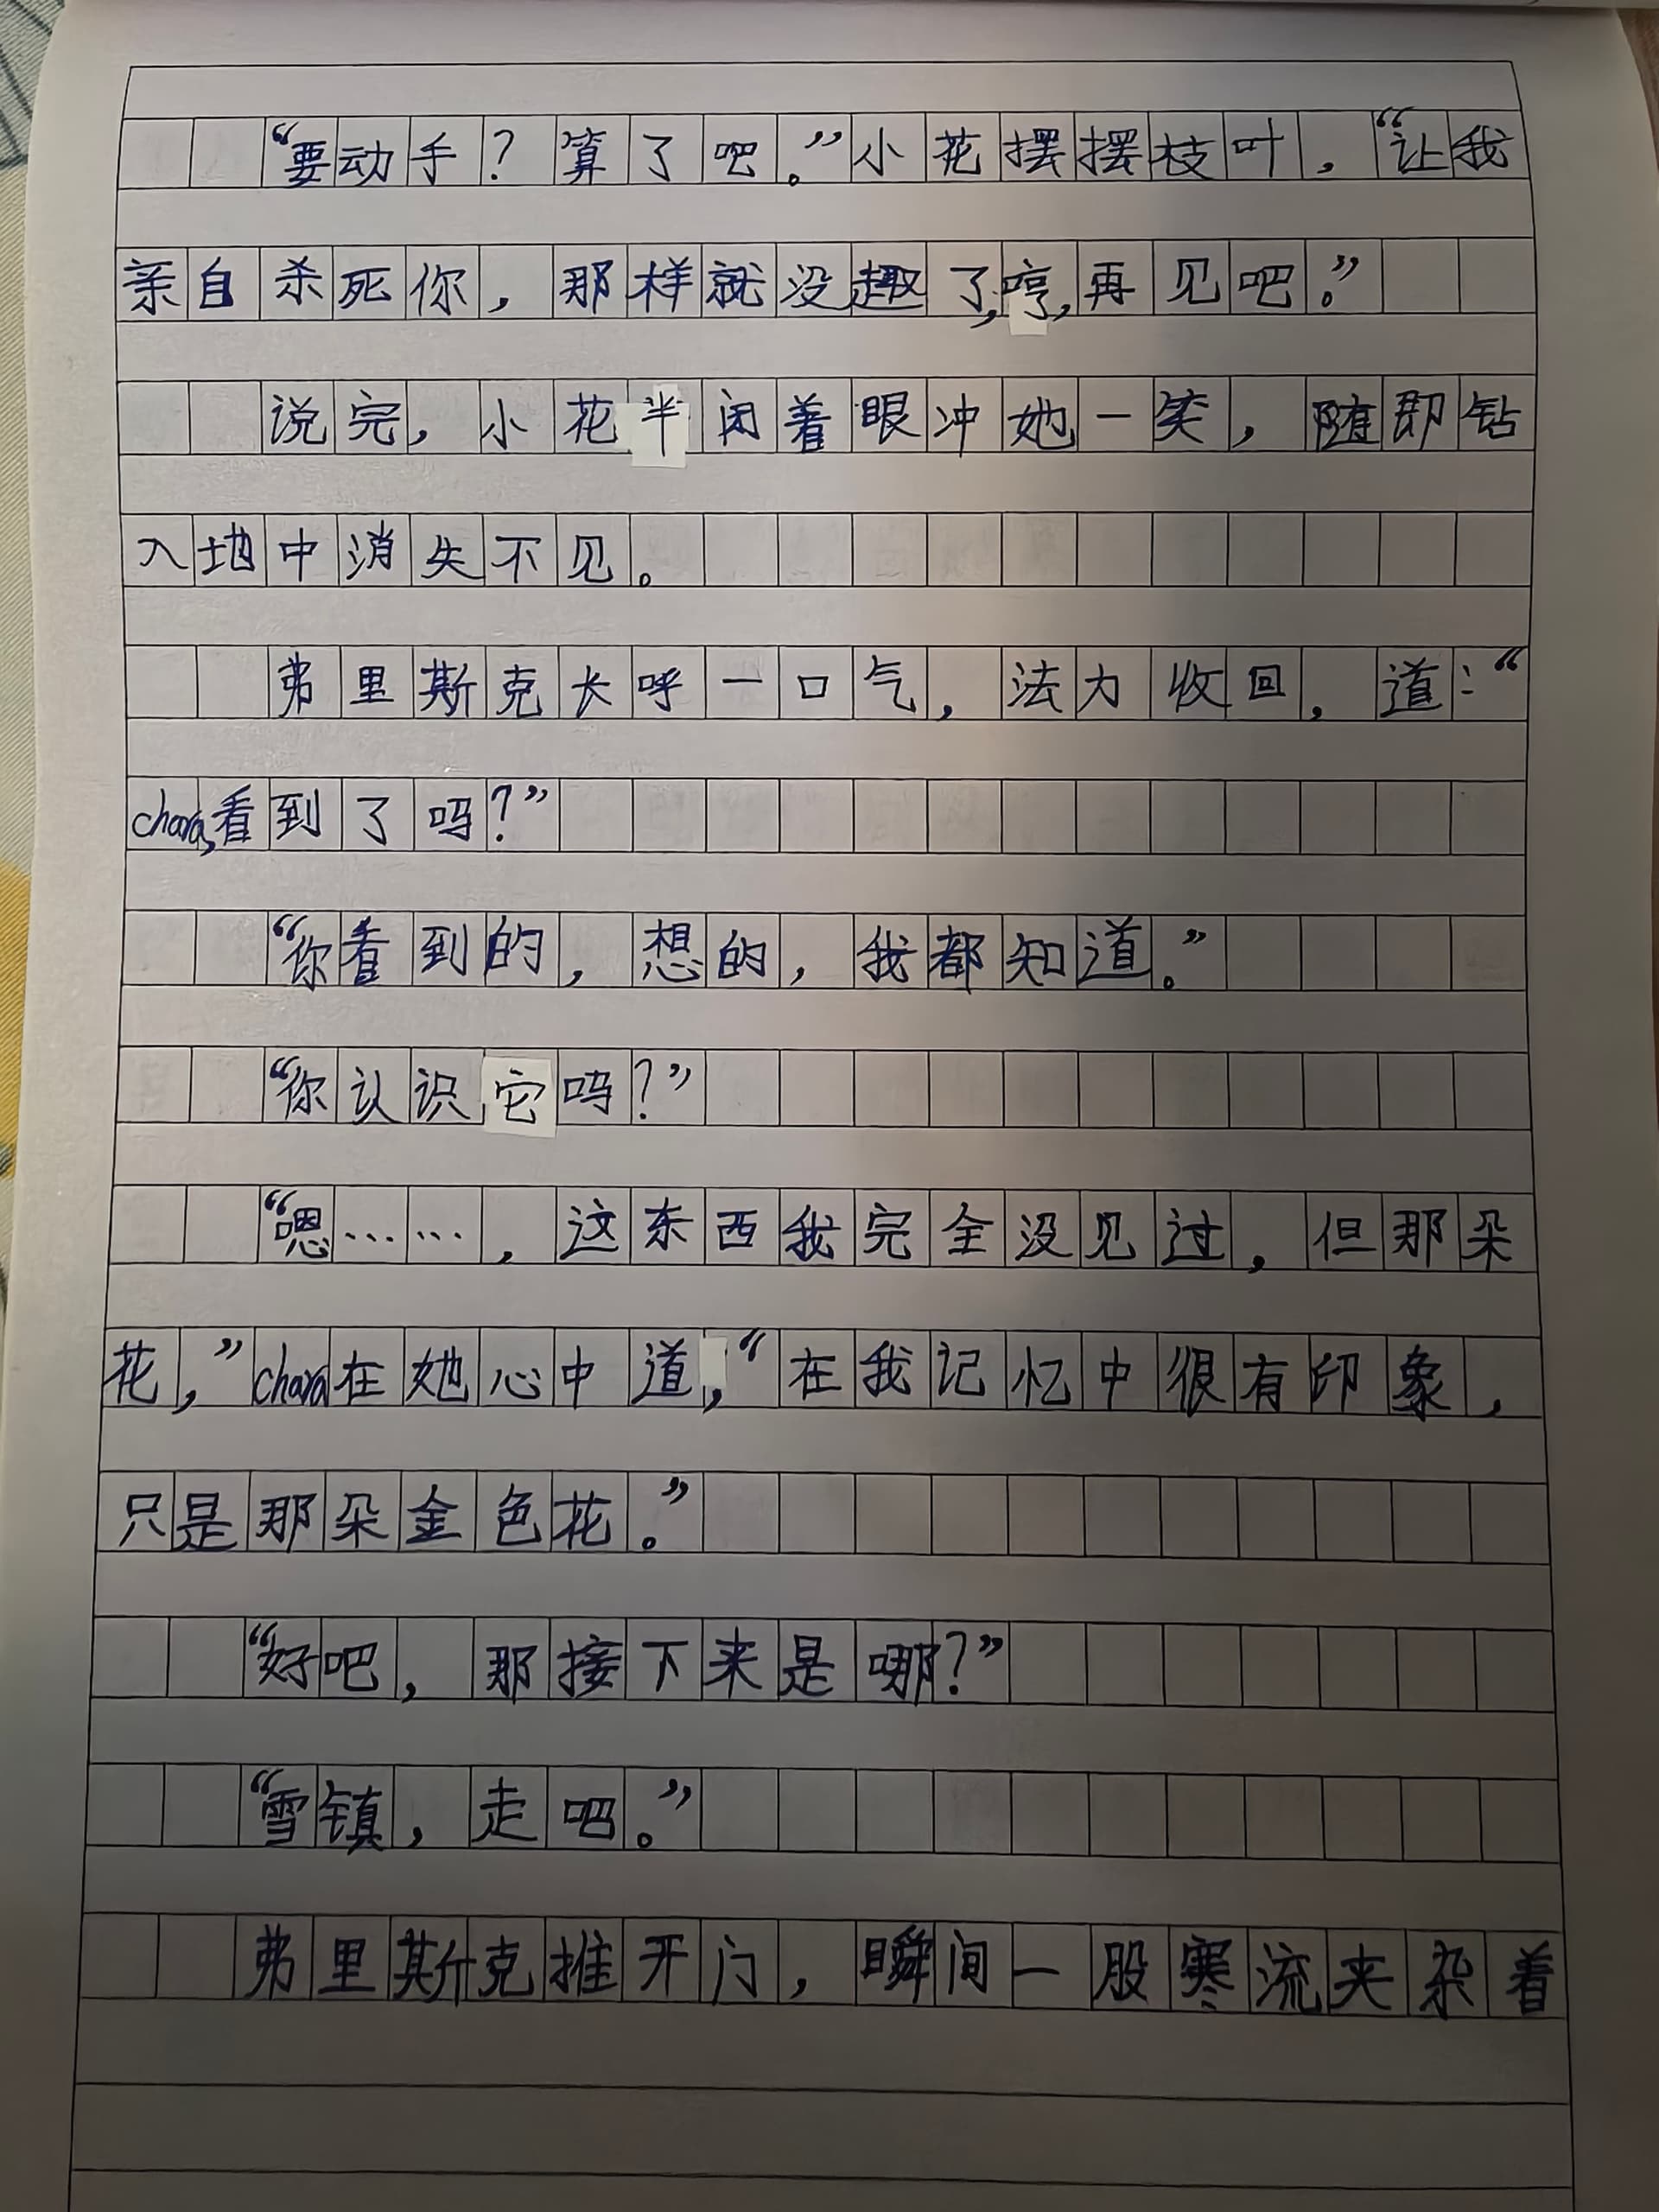 “要动手？算了吧。”小花摆摆枝叶，“让我
亲自杀死你，那样就没趣了，哼，再见吧。”
说完，小花半闭着眼冲她一笑，随即钻
入地中消失不见。
弗里斯克长呼一口气，法力收回，道：“
chara，看到了吗？”
“你看到的，想的，我都知道。”
“你认识它吗？”
“嗯……，这东西我完全没见过，但那朵
花，”chara在她心中道，“在我记忆中很有印象，
只是那朵金色花。”
“好吧，那接下来是哪？”
“雪镇，走吧。”
弗里斯克推开门，瞬间一股寒流夹杂着